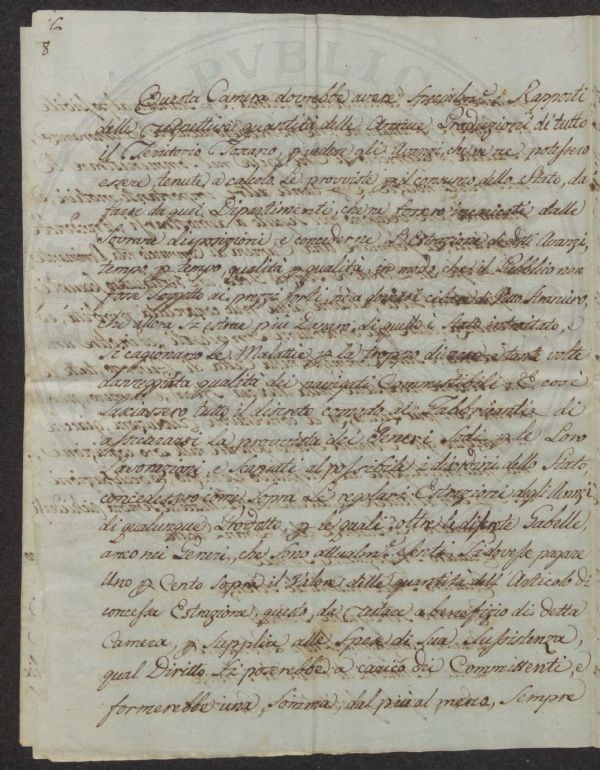 6
8
PVBLIC
Questa Camera dovrebbe avere specialm.e i Rapporti
delle respettive quantità delle Annue Produzzioni di tutto
il Territorio Toscano, p vedere gli Avanzi, che ne potessero
essere tenuti a calcolo, le provviste p il consumo dello Stato, da
farsi da quei Dipartimenti, che ne fossero incaricati dalle
Sovrane disposizioni, e concederne l'Estrazione de detti Avanzi,
tempo p tempo, qualità p qualità, in modo che il Pubblico non
fosse soggetto ai prezzi forti, nè a doversi cibare di Vitto straniero,
che allora si estrae più Danaro, di quello è stato introitato, e
si cagionano le Malattie p la troppo diversa, e tante volte
danneggiata qualità dei navigati Commestibili; E così
lasciassero tutto il discreto comodo ai Fabbricanti di
assicurarsi la provvista dei Generi Sodi p le Loro
Lavorazioni, e scansati al possibile i disordini dello Stato,
concedessero come sopra le regolari Estrazioni degli Avanzi
di qualunque Prodotto, p le quali oltre le Gabelle,
anco nei Generi, che sono attualm.e esenti, si dovesse pagare
Uno p Cento sopra il Valore della quantità dell'Articolo di
concessa Estrazione, questo, da a benefizio di detta
Camera, p supplire alle Spese di Sua Sussistenza,
qual Diritto si poserebbe a carico dei Committenti, e
formerebbe una Somma, dal più al meno, sempre